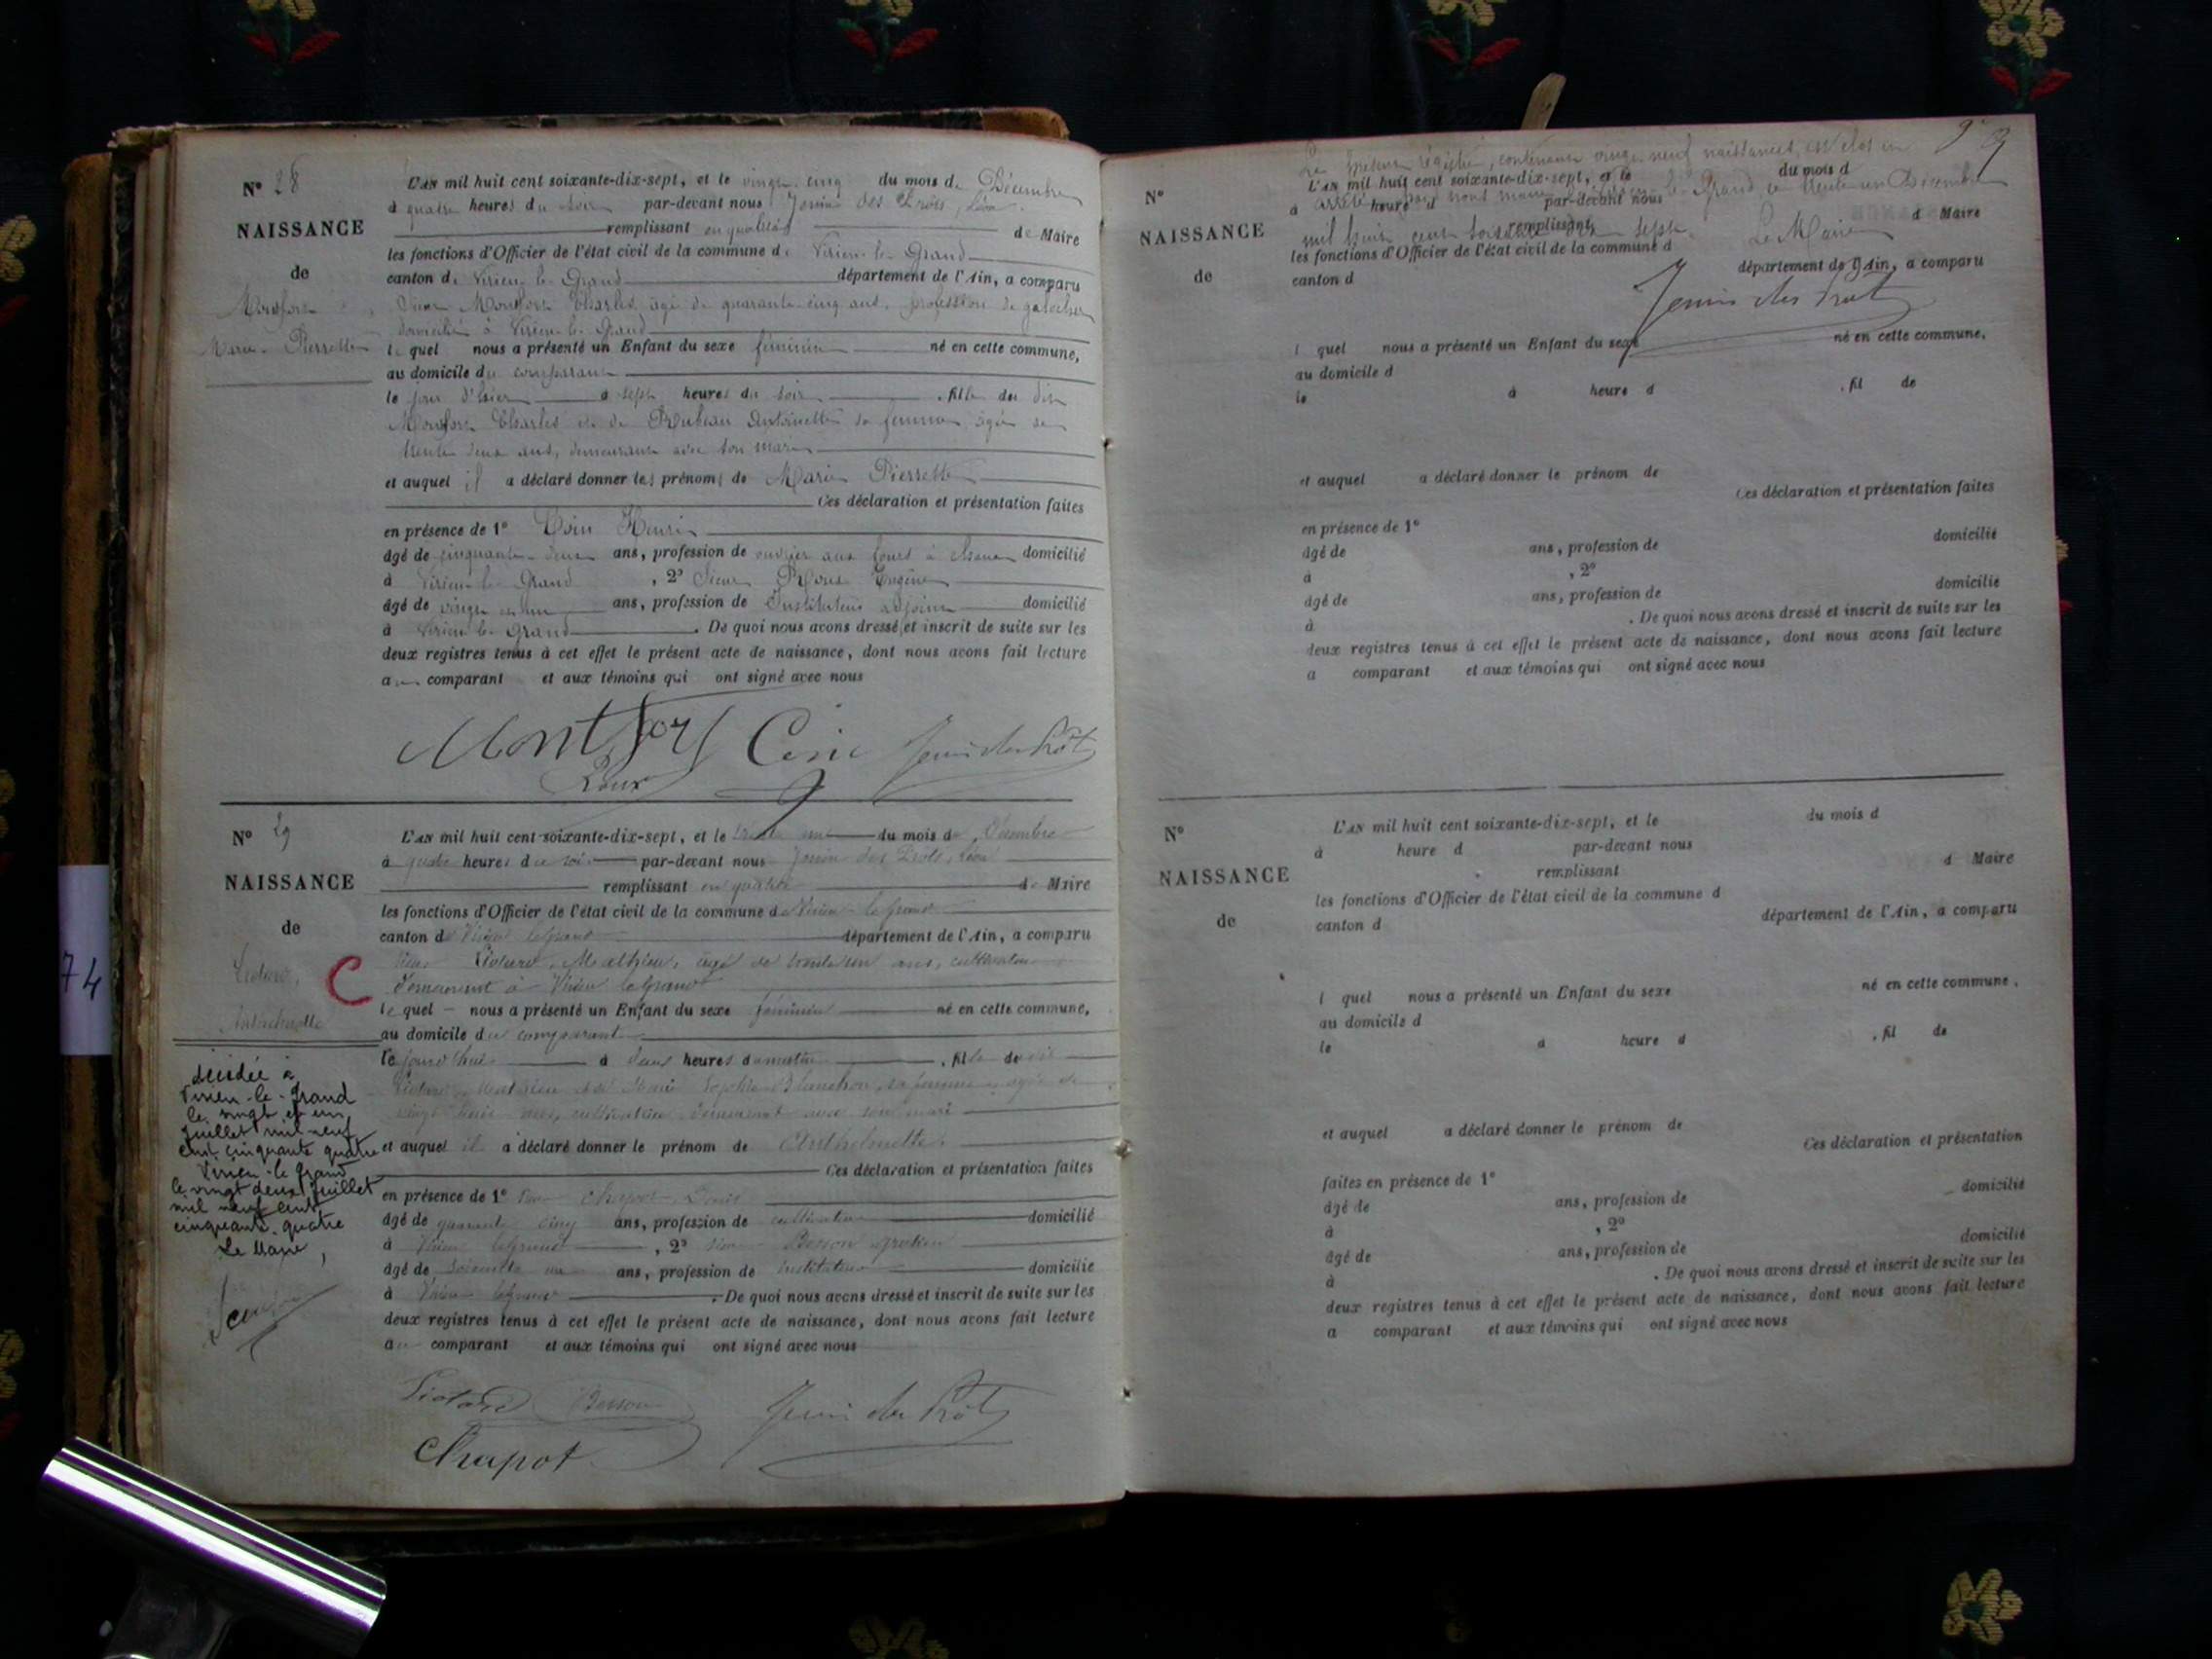 N° 28
NAISSANCE
de
Montfort
Marie-Pierrette
L'AN mil huit cent soixante-dix-sept, et le vingt-cinq du mois de Décembre
à quatre heures du soir par-devant nous Jenin des Prôts, Léon
remplissant en qualité de Maire
les fonctions d'Officier de l'état civil de la commune de Virieu-le-Grand
canton de Virieu-le-Grand département de l'Ain, a comparu
Sieur Montfort Charles, âgé de quarante-cinq ans, profession de galocher
domicilié à Virieu-le-Grand
lequel nous a présenté un Enfant du sexe féminin né en cette commune,
au domicile du comparant
le jour d'hier à sept heures du soir, fille du dit
Montfort Charles et de Antoinette sa femme, âgée de
trente deux ans, demeurant avec son mari
et auquel il a déclaré donner les prénoms de Marie Pierrette
Ces déclaration et présentation faites
en présence de 1° Henri
âgé de cinquante-deux ans, profession de ouvrier aux fours à chaux domicilié
à Virieu-le-Grand, 2° Sieur Roux Eugène
âgé de vingt et un ans, profession de Instituteur adjoint domicilié
à Virieu-le-Grand. De quoi nous avons dressé et inscrit de suite sur les
deux registres tenus à cet effet le présent acte de naissance, dont nous avons fait lecture
au comparant et aux témoins qui ont signé avec nous
Montfort Jenin des Prôts
Roux
N° 29
NAISSANCE
de
C
Anthelmette
L'AN mil huit cent soixante-dix-sept, et le trente un du mois de Décembre
à quatre heures du soir par-devant nous Jenin des Prôts, Léon
remplissant en qualité de Maire
les fonctions d'Officier de l'état civil de la commune de Virieu-le-grand
canton de Virieu le grand département de l'Ain, a comparu
Mathieu, âgé de trente un ans, cultivateur
demeurant à Virieu le grand
lequel nous a présenté un Enfant du sexe féminin né en cette commune,
au domicile du comparant
le jourd'hui à deux heures du matin, fille du dit
Mathieu et de Marie Sophie Blanchon, sa femme, âgée de
vingt huit ans, cultivatrice demeurant avec son mari
et auquel il a déclaré donner le prénom de Anthelmette
Ces déclaration et présentation faites
en présence de 1° Sieur Chapot Denis
âgé de quarante cinq ans, profession de cultivateur domicilié
à Virieu le grand, 2° Sieur Besson
âgé de soixante un ans, profession de instituteur domicilié
à Virieu le grand. De quoi nous avons dressé et inscrit de suite sur les
deux registres tenus à cet effet le présent acte de naissance, dont nous avons fait lecture
au comparant et aux témoins qui ont signé avec nous
Besson Jenin des Prôts
Chapot
décédée à
Virieu-le-Grand
le vingt et un
juillet mil neuf
cent cinquante quatre
Virieu-le-Grand
le vingt deux juillet
mil neuf cent
cinquante-quatre
Le Maire,
74
Le présent registre, contenant vingt-neuf naissances, est clos et
arrêté par nous maire de Virieu-le-Grand, ce trente-un Décembre
mil huit cent soixante-dix-sept.
Le Maire
Jenin des Prôts
N°
NAISSANCE
de
L'AN mil huit cent soixante-dix-sept, et le du mois d
à heure d par-devant nous
remplissant d Maire
les fonctions d'Officier de l'état civil de la commune d
canton d département de l'Ain, a comparu
l quel nous a présenté un Enfant du sexe né en cette commune,
au domicile d
le à heure d , fil de
et auquel a déclaré donner le prénom de
Ces déclaration et présentation faites
en présence de 1°
âgé de ans, profession de domicilié
à , 2°
âgé de ans, profession de domicilié
à . De quoi nous avons dressé et inscrit de suite sur les
deux registres tenus à cet effet le présent acte de naissance, dont nous avons fait lecture
a comparant et aux témoins qui ont signé avec nous
N°
NAISSANCE
de
L'AN mil huit cent soixante-dix-sept, et le du mois d
à heure d par-devant nous
remplissant d Maire
les fonctions d'Officier de l'état civil de la commune d
canton d département de l'Ain, a comparu
l quel nous a présenté un Enfant du sexe né en cette commune,
au domicile d
le à heure d , fil de
et auquel a déclaré donner le prénom de
Ces déclaration et présentation
faites en présence de 1°
âgé de ans, profession de domicilié
à , 2°
âgé de ans, profession de domicilié
à . De quoi nous avons dressé et inscrit de suite sur les
deux registres tenus à cet effet le présent acte de naissance, dont nous avons fait lecture
a comparant et aux témoins qui ont signé avec nous